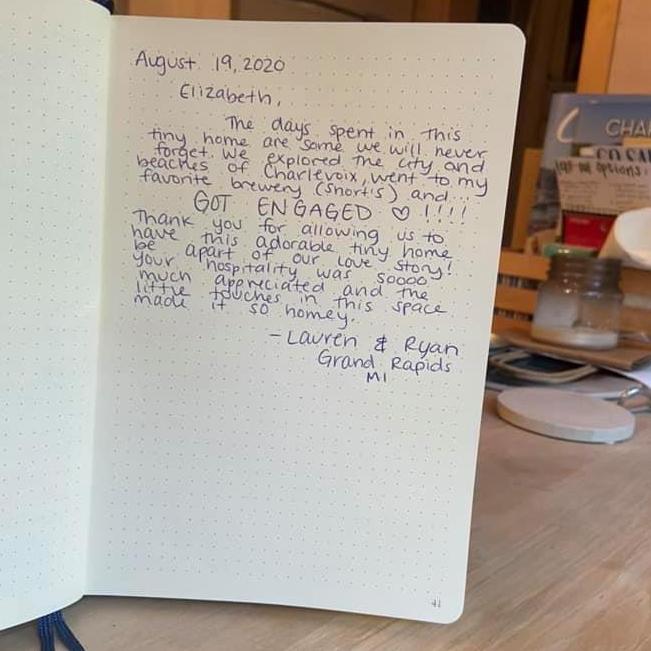 August 19, 2020
Elizabeth,
The days spent in this
tiny home are some we will never
forget. We explored the city and
beaches of Charlevoix, went to my
favorite brewery (Short's) and...
GOT ENGAGED ♡ !!!!
Thank you for allowing us to
have this adorable tiny home
be apart of our love story!
Your hospitality was soooo
much appreciated and the
little touches in this space
made it so homey.
- Lauren & Ryan
Grand Rapids
MI
CHA
options: